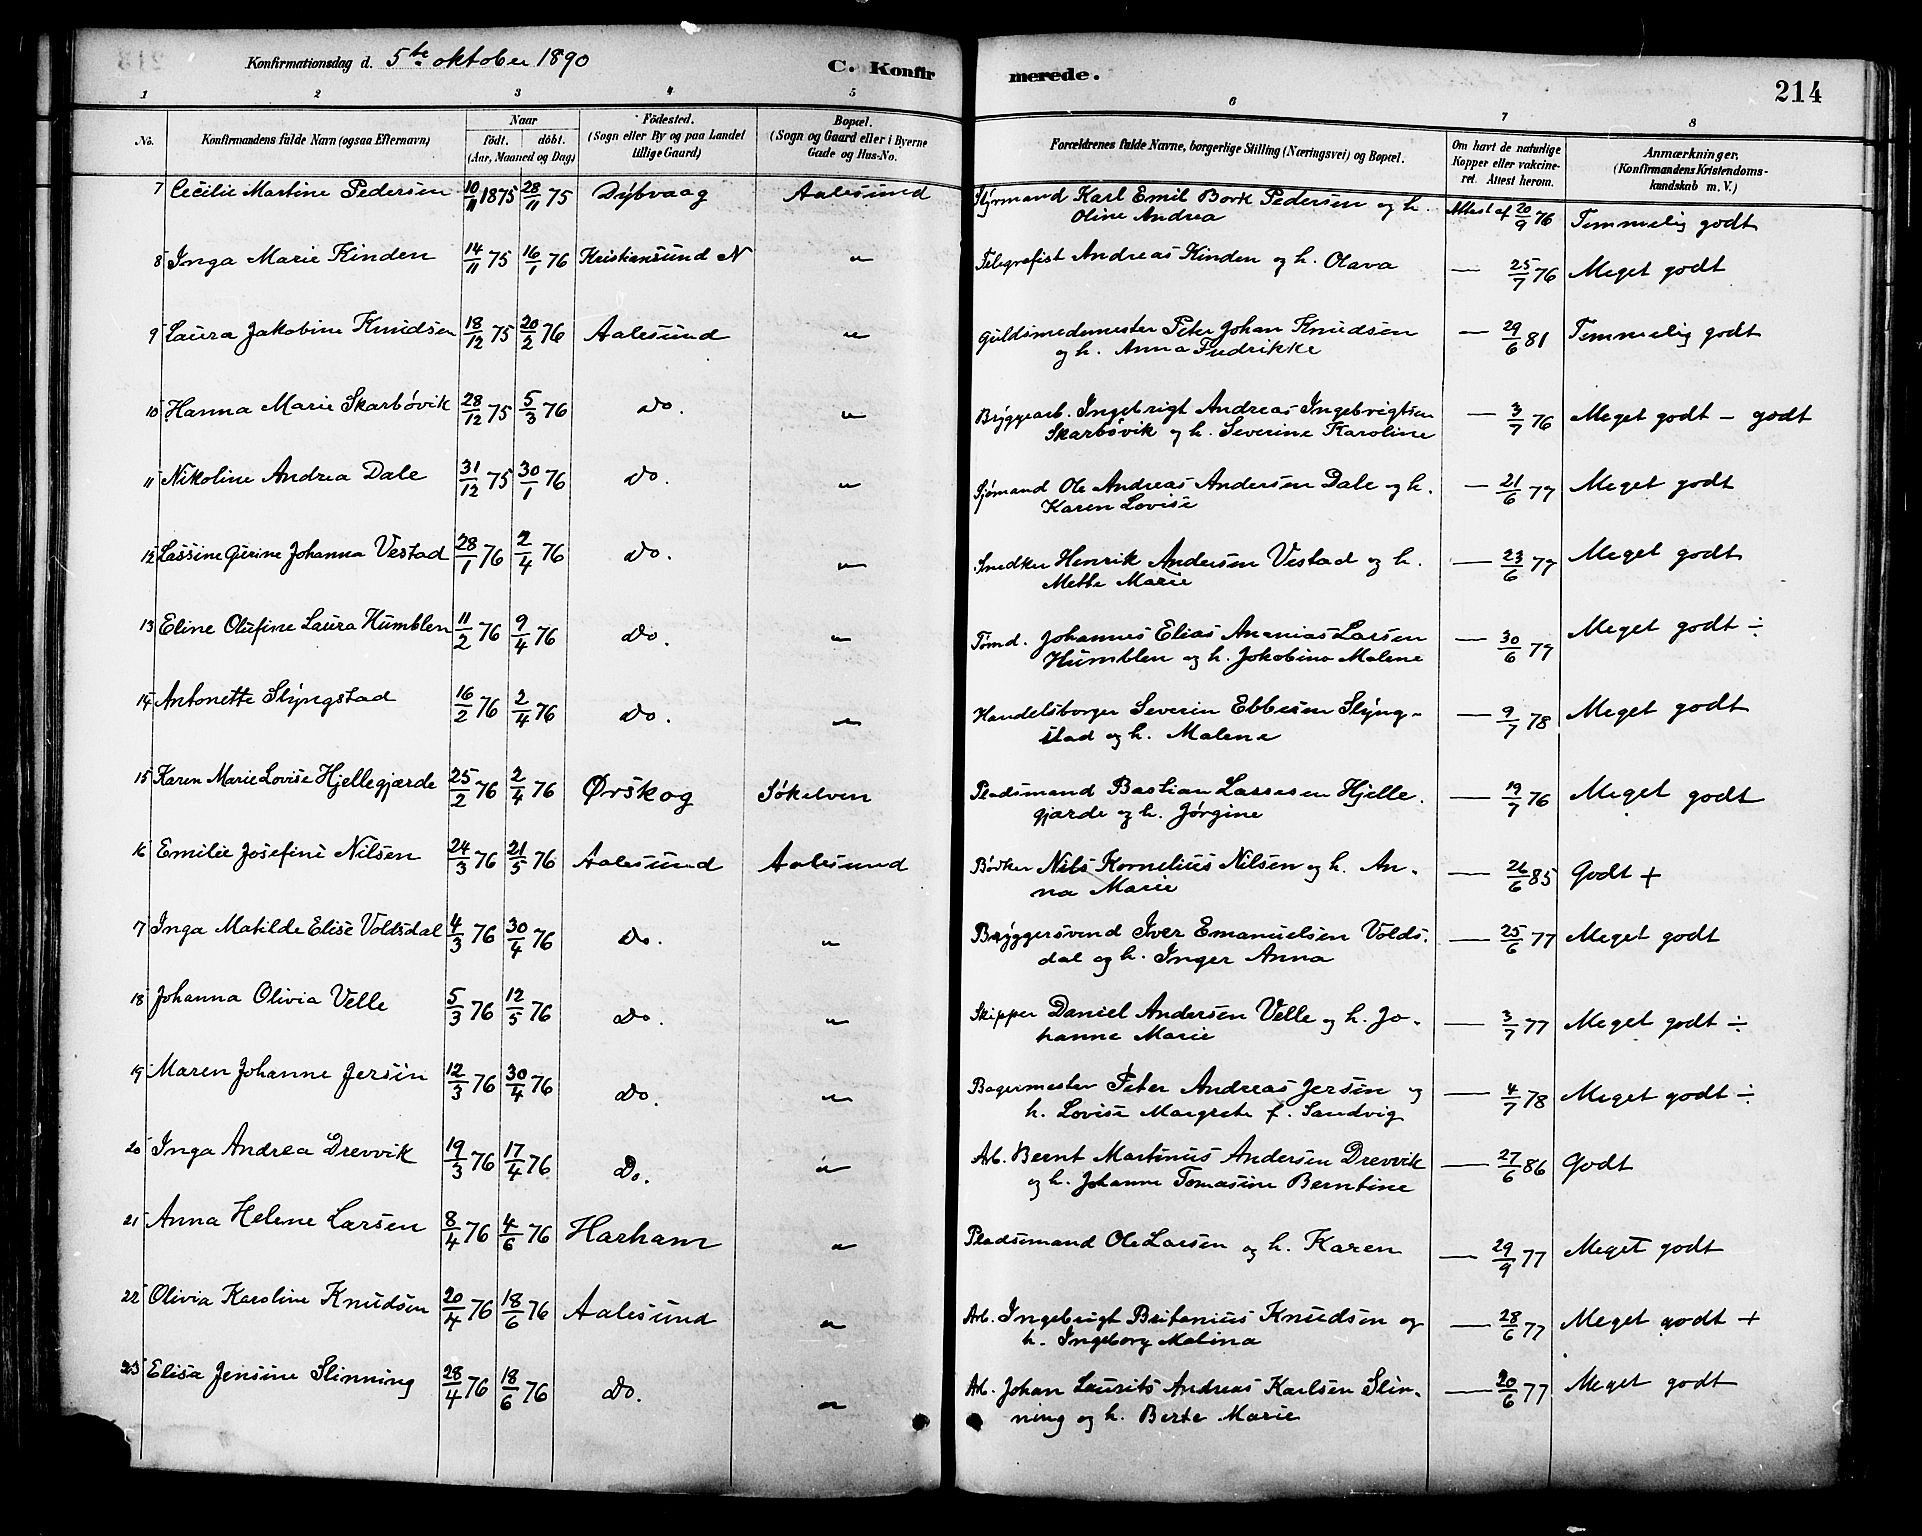 Konfirmationsdag d. 5te oktober 1890
C. Konfirmerede.
214
1 2 3 4 5 6 7 8
No. Konfirmandens fulde Navn (ogsaa Efternavn) Naar födt. döbt. (Aar, Maaned og Dag) Födested. (Sogn eller By og paa Landet tillige Gaard) Bopæl. (Sogn og Gaard eller i Byerne Gade og Hus-No. Forældrenes fulde Navne, borgerlige Stilling (Næringsvei) og Bopæl. Om havt de naturlige Kopper eller vakcineret. Attest herom. Anmærkninger. (Konfirmandens Kristendomskundskab m. V.)
7 Cecilie Martine Pedersen 10/11 1875 28/11 75 Dybvaag Aalesund Styrmand Karl Emil Bork Pedersen og h. Attest af 20/9 76 Temmelig godt
Oline Andrea
8 Inga Marie Kinden 14/11 75 16/1 76 Kristiansund N " Telegrafist Andreas Kinden og h. Olava — 25/7 76 Meget godt
9 Laura Jakobine Knudsen 18/12 75 20/2 76 Aalesund " Guldsmedemester Peter Johan Knudsen — 29/6 81 Temmelig godt
og h. Anna Fredrikke
10 Hanna Marie Skarbövik 28/12 75 5/3 76 Do. " Bryggearb. Ingebrigt Andreas Ingebrigtsen — 3/7 76 Meget godt - godt
Skarbövik og h. Severine Karoline
11 Nikoline Andrea Dale 31/12 75 30/1 76 Do. " Sjömand Ole Andreas Andersen Dale og h. — 21/6 77 Meget godt
Karen Lovise
12 Lassine Gurine Johanna Vestad 28/1 76 2/4 76 Do. " Snedker Henrik Andersen Vestad og h. — 23/6 77 Meget godt
Mette Marie
13 Eline Olufine Laura Humblen 11/2 76 9/4 76 Do. " Tömd. Johannes Elias Ananias Larsen — 30/6 77 Meget godt ÷
Humblen og h. Jakobine Malene
14 Antonette Slyngstad 16/2 76 2/4 76 Do. " Handelsborger Severin Ebbesen Slyng- — 9/7 78 Meget godt
stad og h. Malene
15 Karen Marie Lovise Hjellegjærde 25/2 76 2/4 76 Ørskog Sökelven Pladsmand Bastian Lassesen Hjelle- — 19/7 76 Meget godt
gjærde og h. Jørgine
16 Emilie Josefine Nilsen 24/3 76 21/5 76 Aalesund Aalesund Bödker Nils Kornelius Nilsen og h. An- — 26/6 85 Godt +
na Marie
7 Inga Matilde Elise Voldsdal 4/3 76 30/4 76 Do. " Bryggersvend Iver Emanuelsen Volds- — 25/6 77 Meget godt
dal og h. Inger Anna
18 Johanna Olivia Velle 5/3 76 12/5 76 Do. " Skipper Daniel Andersen Velle og h. Jo- — 3/7 77 Meget godt ÷
hanne Marie
19 Maren Johanne Jersin 12/3 76 30/4 76 Do. " Bagermester Peter Andreas Jersin og — 4/7 78 Meget godt ÷
h. Lovise Margrete f. Sandvig
20 Inga Andrea Drevvik 19/3 76 17/4 76 Do. " Arb. Bernt Martinus Andersen Drevvik — 27/6 86 Godt
og h. Johanne Tomasine Berntine
21 Anna Helene Larsen 8/4 76 4/6 76 Harham " Pladsemand Ole Larsen og h. Karen — 29/9 77 Meget godt
22 Olivia Karoline Knudsen 20/4 76 18/6 76 Aalesund " Arb. Ingebrigt Britanius Knudsen og — 28/6 77 Meget godt +
h. Ingeborg Malina
23 Elisa Jensine Slinning 28/4 76 18/6 76 Do. " Arb. Johan Laurits Andreas Karlsen Slin- — 20/6 77 Meget godt
ning og h. Berte Marie